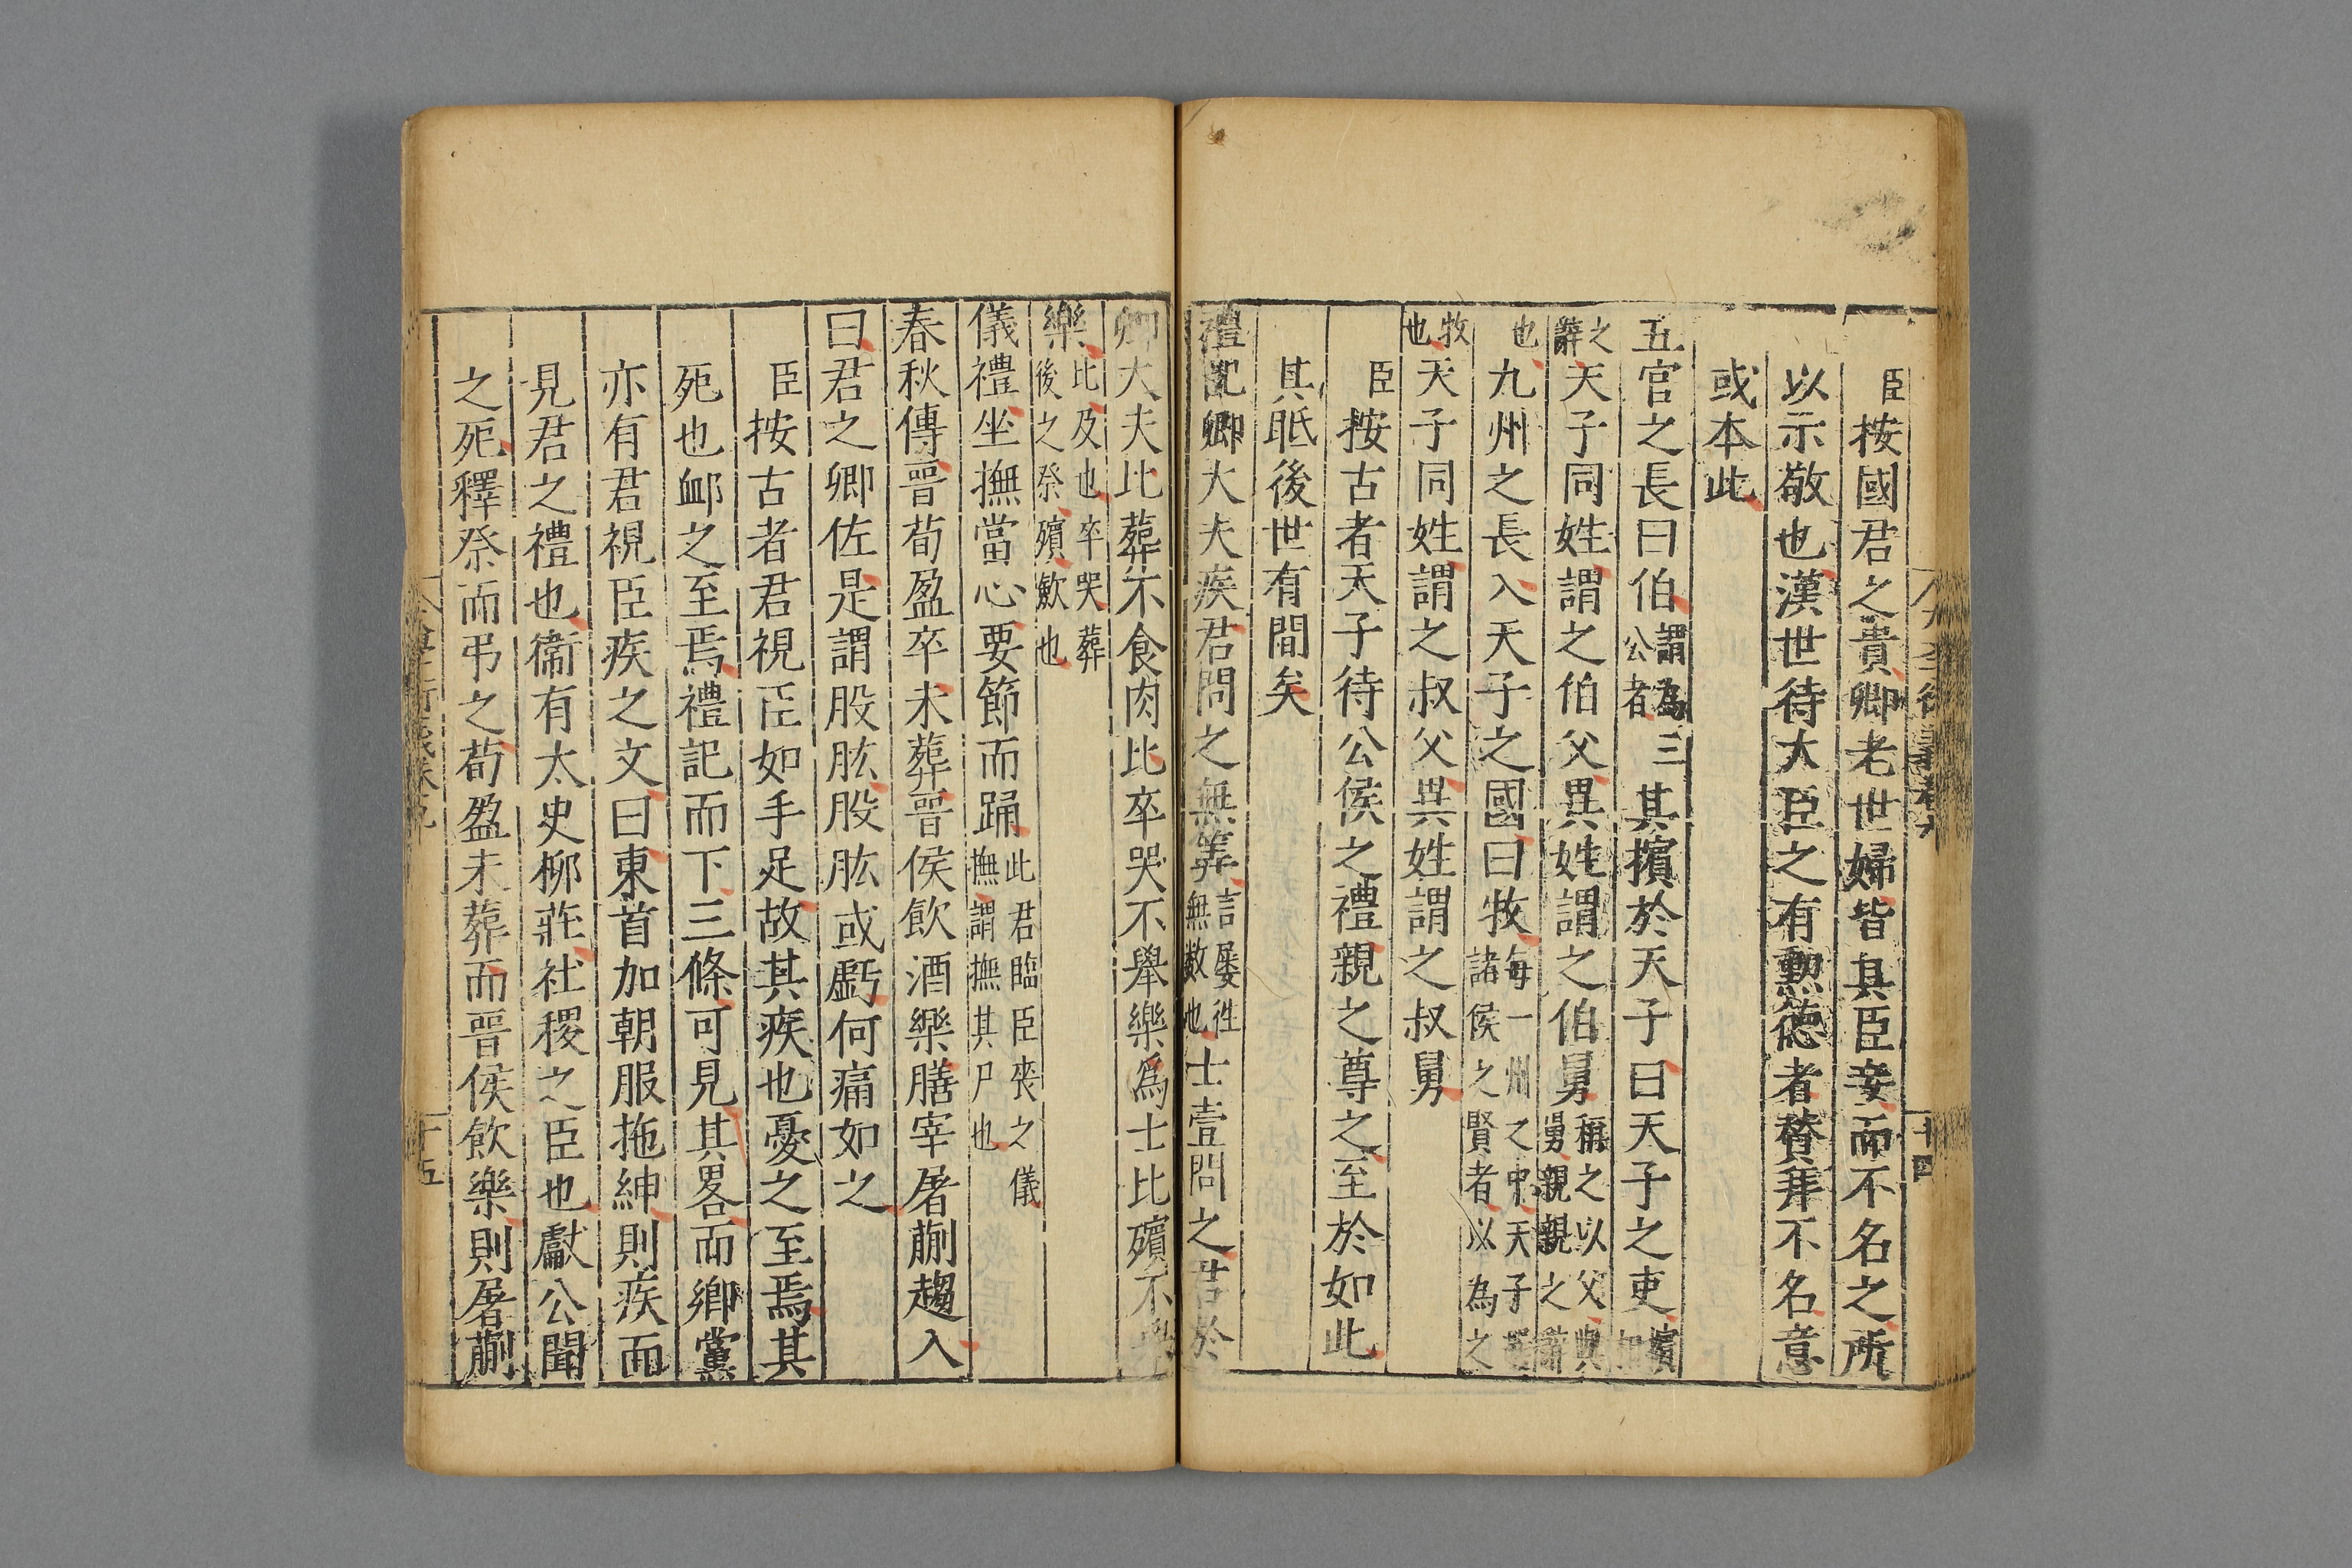 臣按國君之貴卿老世婦皆其臣妾而不名之所
以示敬也漢世待大臣之有勲德者賛拜不名意
或本此
五官之長曰伯謂為三公者其擯於天子曰天子之吏擯
之辭天子同姓謂之伯父異姓謂之伯舅稱之以父與舅親親之辭
也九州之長入天子之國曰牧每一州之中天子選諸侯之賢者以為之
牧也天子同姓謂之叔父異姓謂之叔舅
臣按古者天子待公侯之禮親之尊之至於如此
其眂後世有間矣
禮記卿大夫疾君問之無筭言屡徃無數也士壹問之君於
卿大夫比葬不食肉比卒哭不舉樂為士比殯不舉
樂比及也卒哭葬後之祭殯歛也
儀禮坐撫當心要節而踊此君臨臣喪之儀撫謂撫其尸也
春秋傳晉荀盈卒未葬晉侯飲酒樂膳宰屠蒯趨入
曰君之卿佐是謂股肱股肱或虧何痛如之
臣按古者君視臣如手足故其疾也憂之至焉其
死也䘏之至焉禮記而下三條可見其畧而鄉黨
亦有君視臣疾之文曰東首加朝服拖紳則疾而
見君之禮也衞有太史柳莊社稷之臣也獻公聞
之死釋祭而弔之荀盈未葬而晉侯飲樂則屠蒯